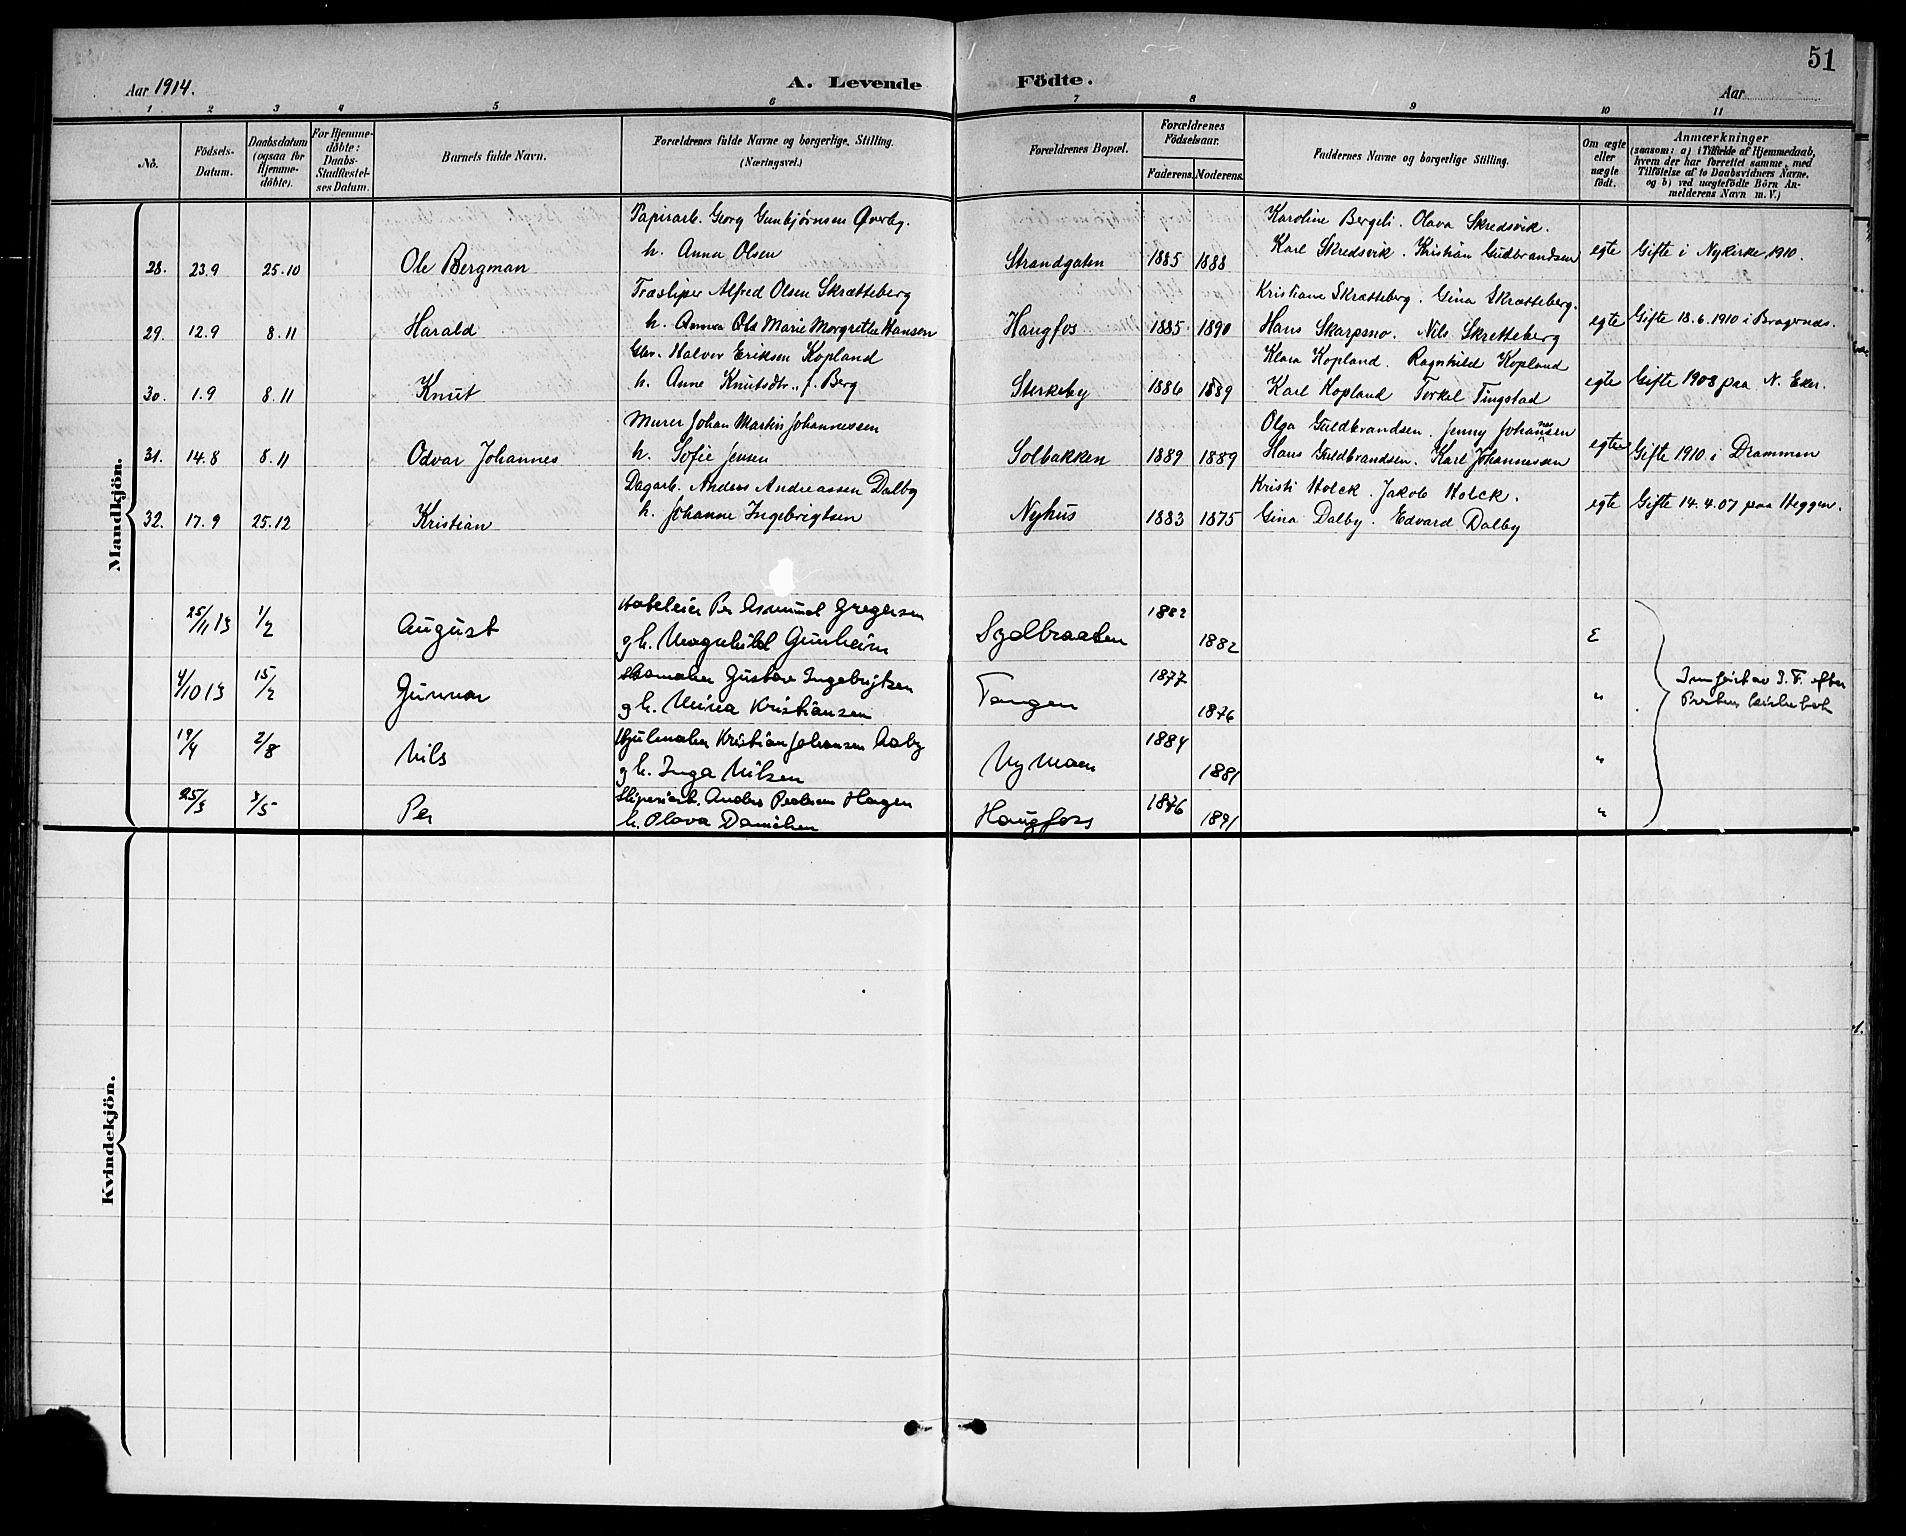 51
Aar 1914.
A. Levende
Födte.
Aar
1 2 3 4 5 6 7 8 9 10 11
No.
Födsels-Datum.
Daabsdatum (ogsaa for Hjemme-döbte).
For Hjemme-döbte: Daabs-Stadfæstel-ses Datum.
Barnets fulde Navn.
Forældrenes fulde Navne og borgerlige. Stilling. (Næringsvei.)
Forældrenes Bopæl.
Forældrenes Födselsaar.
Faderens. Moderens.
Faddernes Navne og borgerlige Stilling.
Om ægte eller uægte födt.
Anmærkninger
(saasom: a) i Tilfælde af Hjemmedaab,
hvem der har forrettet samme, med
Tilföielse af to Daabsvidners Navne.
og b) ved uægtefödte Börn An-
melderens Navn m. V.)
Mandkjön.
Papirarb. Georg Gunbjørnsen Øverby.
Karoline Bergeli. Olava Skredsvik.
28. 23.9 25.10 Ole Bergman h. Anna Olsen Strandgaten 1885 1888 Karl Skredsvik. Kristian Gudbrandsen egte Gifte i Nykirke 1910.
Træsliper Alfred Olsen Skrætteberg
Kristiane Skrætteberg. Gina Skrætteberg.
29. 12.9 8.11 Harald h. Anna Marie Margrethe Hansen Haugfos 1885 1890 Hans Skarpsno. Nils Skretteberg egte Gifte 18.6.1910 i Bragernæs.
Halvor Eriksen Kopland
Klara Kopland. Ragnhild Kopland
30. 1.9 8.11 Knut h. Anne Knutsdtr. f. Berg Sterkeby 1886 1889 Karl Kopland Torkel Tingstad egte Gifte 1908 paa N. Eker.
Murer Johan Martin Johannessen
Olga Guldbrandsen. Jenny Johannesen
31. 14.8 8.11 Odvar Johannes h. Sofie Jensen Solbakken 1889 1889 Hans Guldbrandsen. Karl Johannessen egte Gifte 1910 i Drammen
Dagarb. Anders Andreassen Dalby
Kristi Holck. Jakob Holck.
32. 17.9 25.12 Kristian h. Johanne Ingebrigtsen Nyhus 1883 1875 Gina Dalby. Edvard Dalby egte Gifte 14.4.07 paa Heggen.
25/11 13 1/2 August Per Asmund Gregersen 1882
g h. Magnhild Gunheim 1882 E
4/10 13 15/2 Gunnar Skomaker Gustav Ingebrigtsen Tangen 1877
g h. Mina Kristiansen 1876 "
Indført av
19/4 2/8 Nils Hjulmaker Kristian Johansen Aaby Ny Maen 1884
g h. Inga Nilsen 1881 "
25/3 3/5 Per Sliperiarb. Anders Pedersen Hagen Haugfoss 1876
h. Olava 1891 "
Kvindekjön.